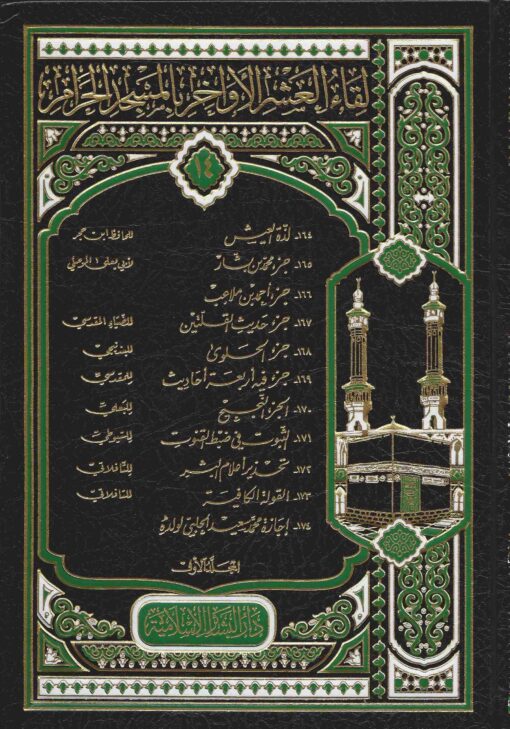 لقاء العشر الأواخر بالمسجد الحرام
١٤
١٦٤ـ لذة العيش للحافظ ابن حجر
١٦٥ـ جزء محمد بن بشار لأبي يعلى الموصلي
١٦٦ـ جزء أحمد بن ملاعب
١٦٧ـ جزء حديث القلتين للضياء المقدسي
١٦٨ـ جزء الحلوى للبندنيجي
١٦٩ـ جزء فيه أربعة أحاديث للمقدسي
١٧٠ـ الجزء
١٧١ـ الثبوت في ضبط القنوت للسيوطي
١٧٢ـ تحذير أعلام البشر للتافلاتي
١٧٣ـ القولة الكافية للتافلاتي
١٧٤ـ إجازة محمد سعيد الحلبي لولده
المجلد الأول
دار البشائر الإسلامية